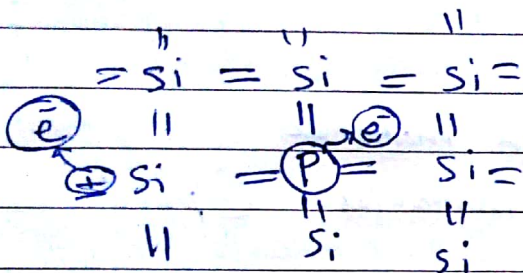 = Si = Si = Si =
e⁻ ± Si = P = e⁻ Si =
Si Si